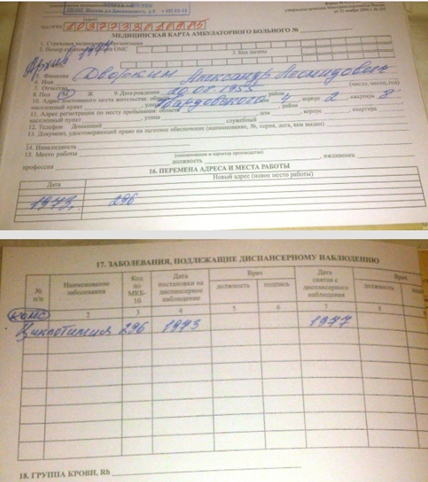 МЕДИЦИНСКАЯ КАРТА АМБУЛАТОРНОГО БОЛЬНОГО №
1. Страховая медицинская организация
2. Номер страхового полиса ОМС
3. Код льготы
Архив 1974
5. Фамилия Дворкин Александр Леонидович
6. Имя
7. Отчество
8. Пол М Ж 9. Дата рождения 20.08.1955
10. Адрес постоянного места жительства: область район
населенный пункт улица Твардовского дом корпус 2 квартира 8
11. Адрес регистрации по месту пребывания: область район
населенный пункт улица дом корпус квартира
12. Телефон Домашний служебный
13. Документ, удостоверяющий право на льготное обеспечение (наименование, №, серия, дата, кем выдан)
14. Инвалидность
15. Место работы
(наименование и характер производства)
профессия должность иждивенец
16. ПЕРЕМЕНА АДРЕСА И МЕСТА РАБОТЫ
Дата Новый адрес (новое место работы)
1973, 296
17. ЗАБОЛЕВАНИЯ, ПОДЛЕЖАЩИЕ ДИСПАНСЕРНОМУ НАБЛЮДЕНИЮ
№ п/п Наименование заболевания Код по МКБ-10 Дата постановки на диспансерное наблюдение Врач должность подпись Дата снятия с диспансерного наблюдения Врач должность
2 3 4 5 6 7 8
Циклотимия 296 1973 1977
18. ГРУППА КРОВИ, Rh